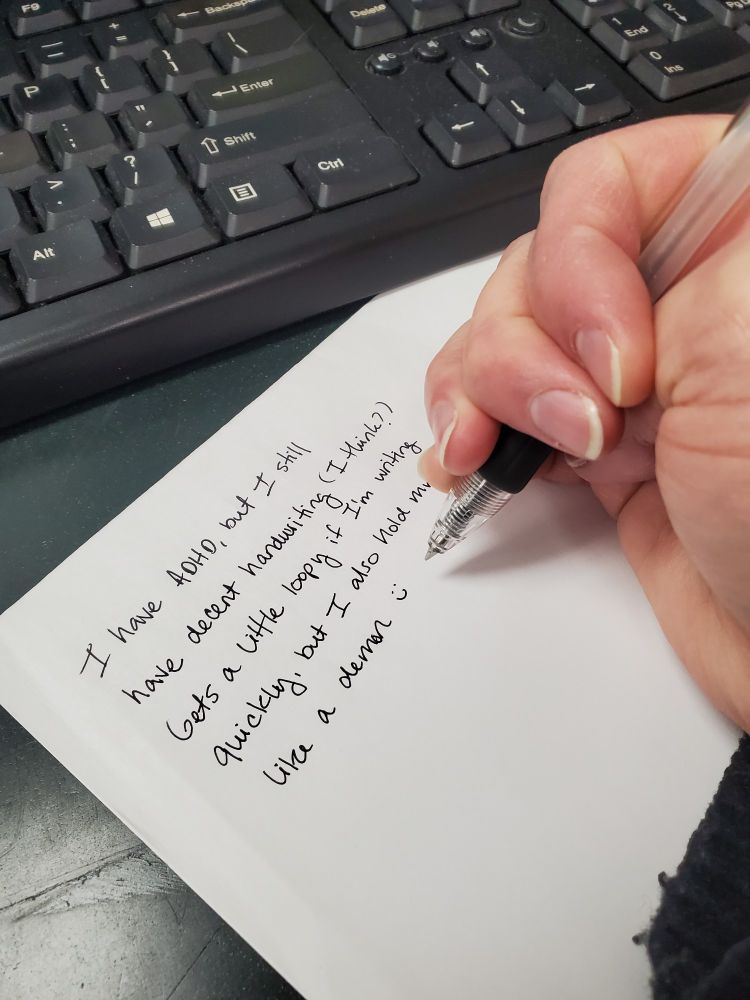 F9
Backsp
Delete
1 End
2
0 Ins
Pg
= +
| \
P { [ } ]
Enter
: ; " '
Shift
> . ? /
Ctrl
Alt
I have ADHD, but I still
have decent handwriting (I think?)
Gets a little loopy if I'm writing
quickly, but I also hold
like a demon :)